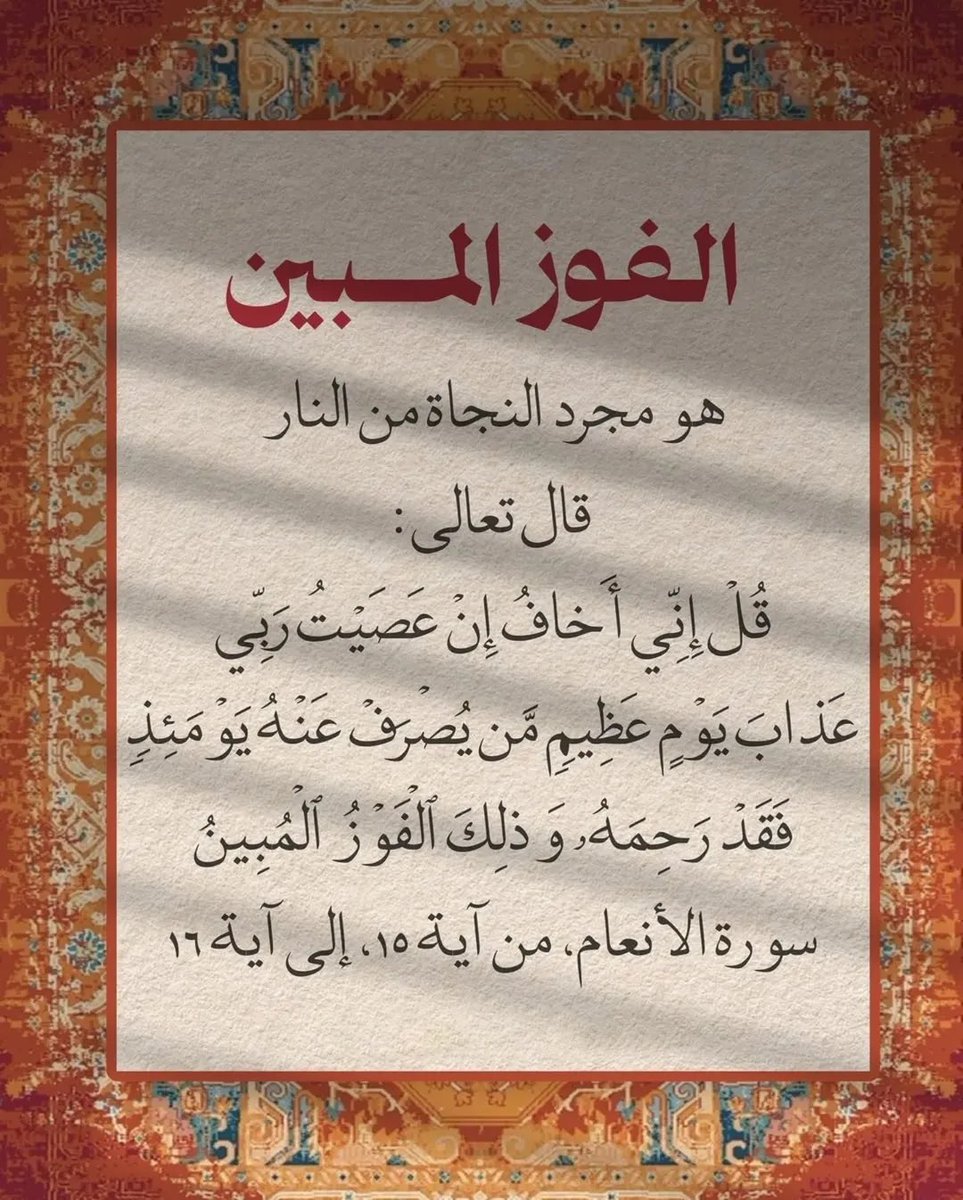 الفوز المبين
هو مجرد النجاة من النار
قال تعالى:
قُلْ إِنِّي أَخافُ إِنْ عَصَيْتُ رَبِّي
عَذابَ يَوْمٍ عَظِيمٍ مَّن يُصْرَفْ عَنْهُ يَوْمَئِذٍ
فَقَدْ رَحِمَهُۥ وَذلِكَ ٱلْفَوْزُ ٱلْمُبِينُ
سورة الأنعام، من آية ١٥، إلى آية ١٦